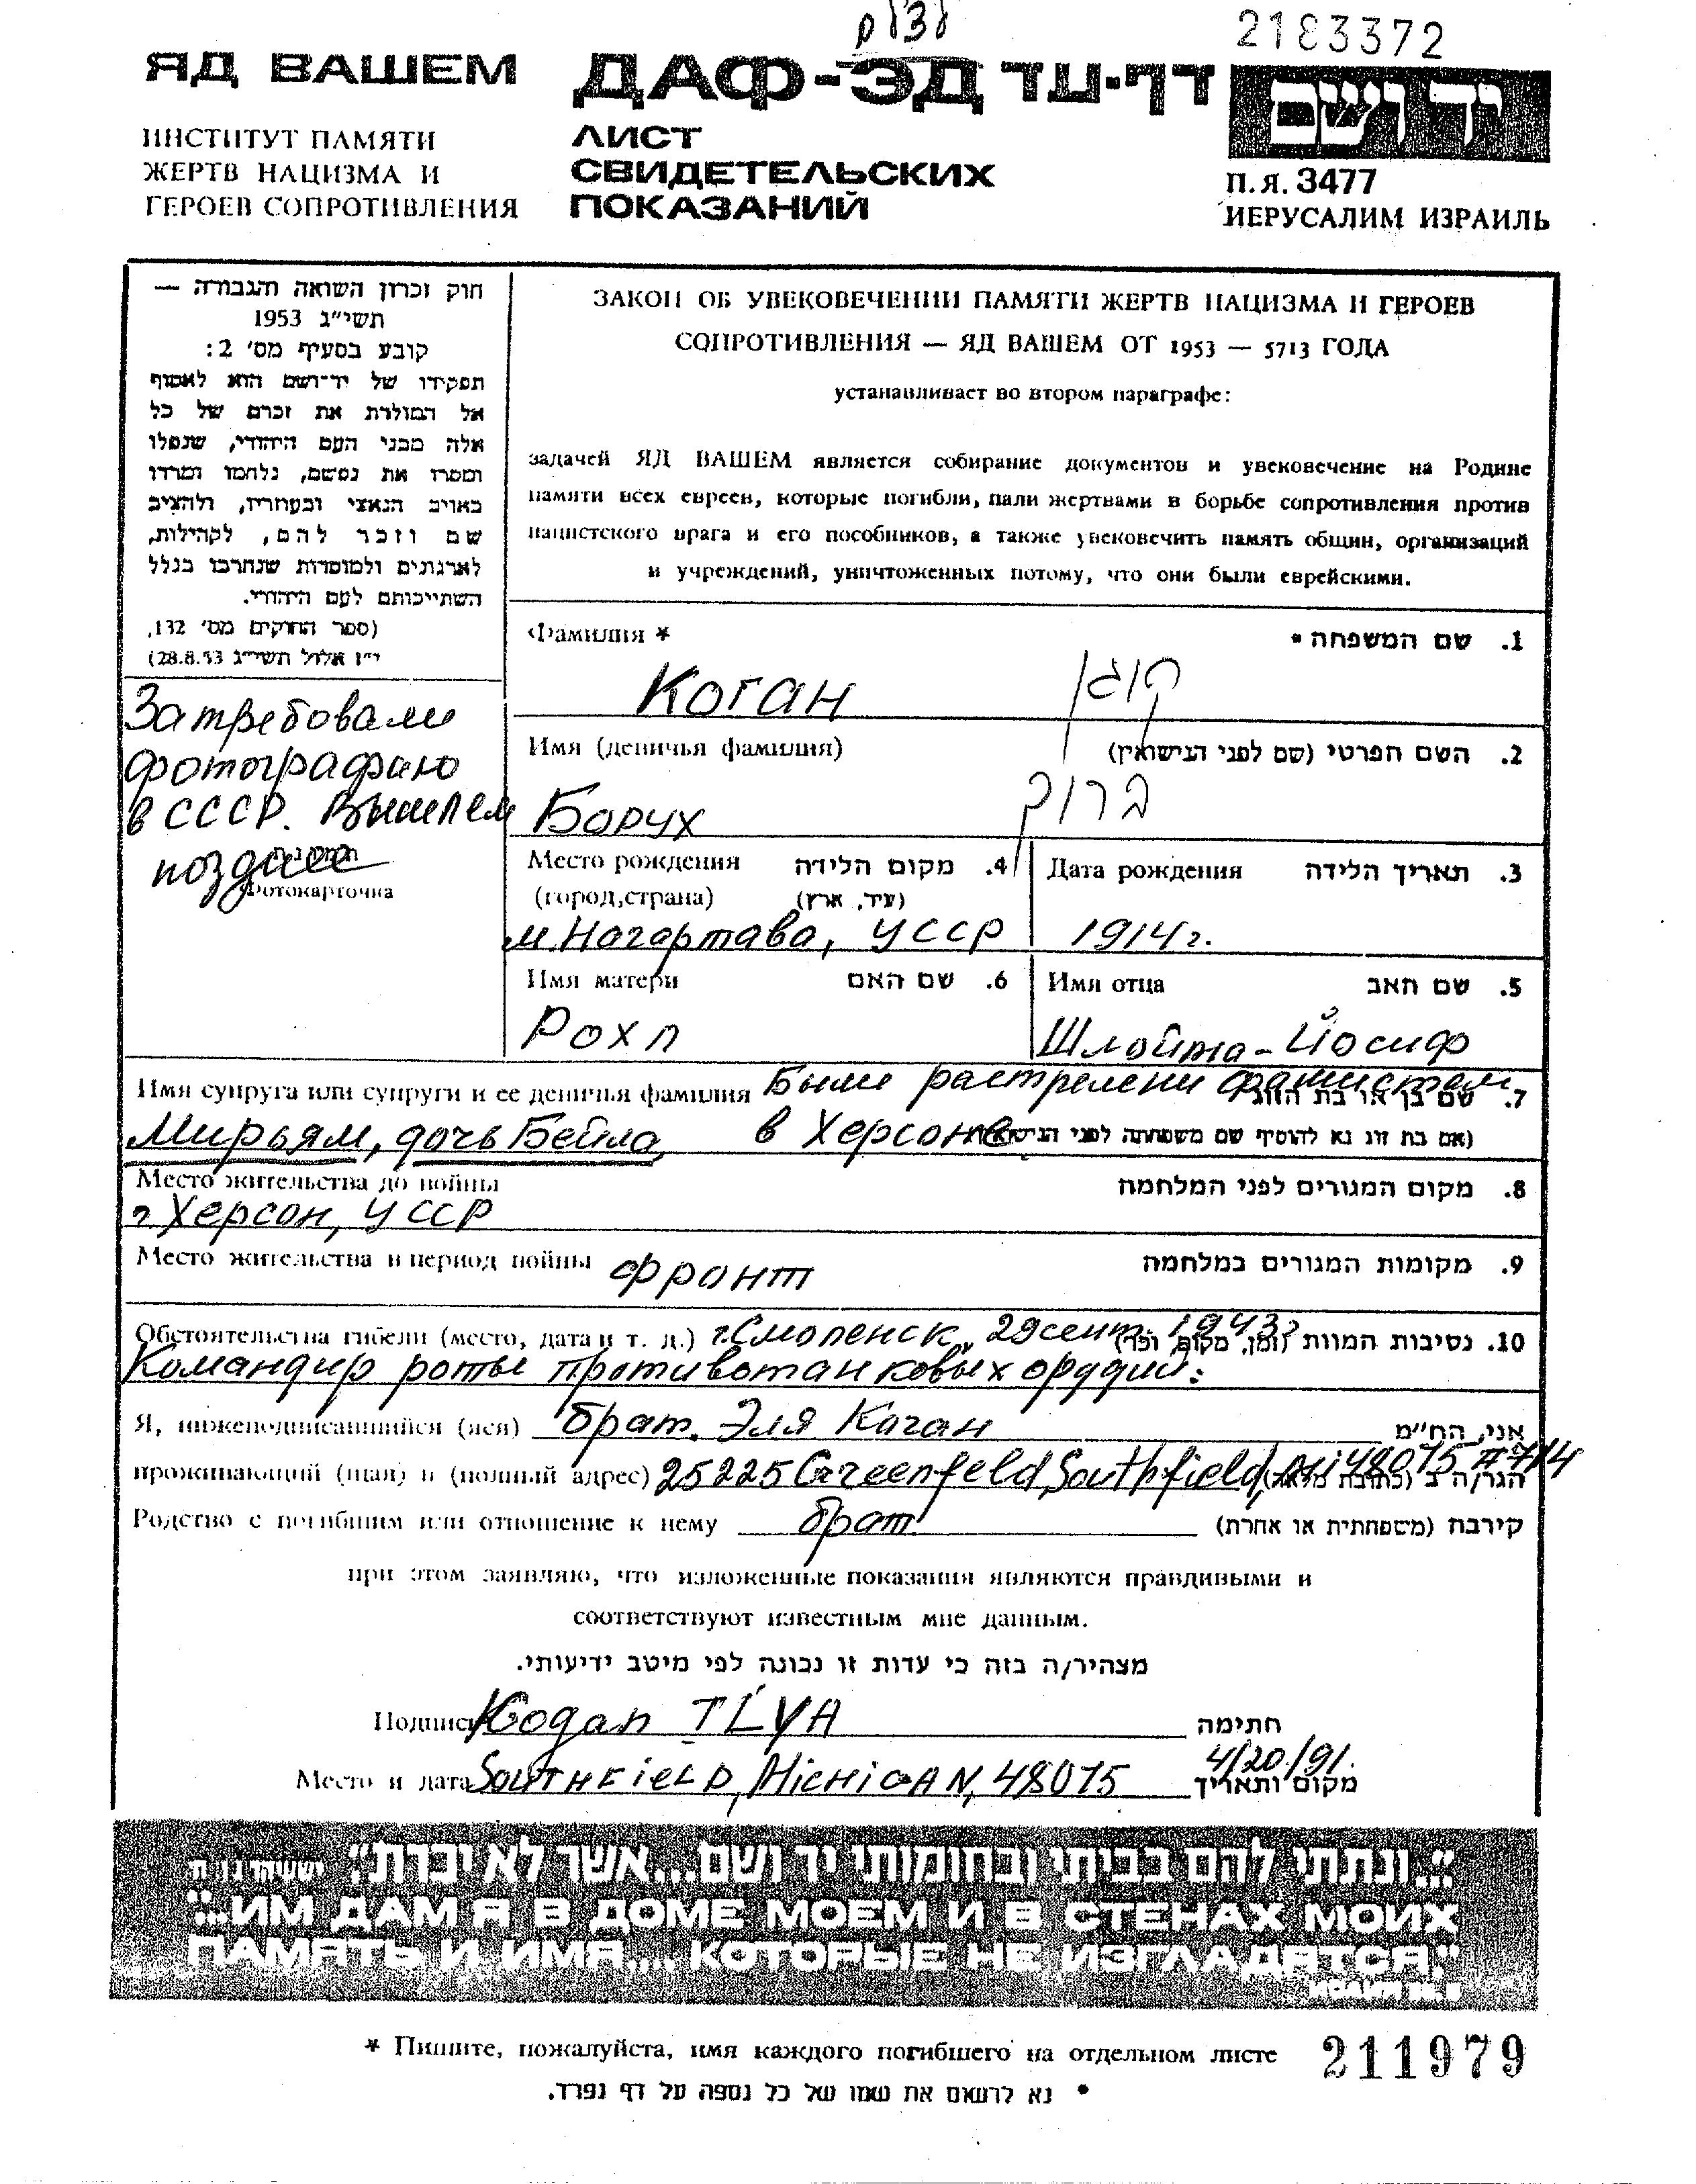 2183372
ЯД ВАШЕМ
ДАФ-ЭД דף-עד
יד ושם
ИНСТИТУТ ПАМЯТИ
ЖЕРТВ НАЦИЗМА И
ГЕРОЕВ СОПРОТИВЛЕНИЯ
ЛИСТ
СВИДЕТЕЛЬСКИХ
ПОКАЗАНИЙ
П.Я. 3477
ИЕРУСАЛИМ ИЗРАИЛЬ
חוק זכרון השואה והגבורה —
תשי״ג 1953
קובע בסעיף מס׳ 2:
תפקידו של יד־ושם הוא לאסוף
אל המולדת את זכרם של כל
אלה מבני העם היהודי, שנפלו
ומסרו את נפשם, נלחמו ומרדו
באויב הנאצי ובעוזריו, ולהציב
שם וזכר להם, לקהילות,
לארגונים ולמוסדות שנחרבו בגלל
השתייכותם לעם היהודי.
(ספר החוקים מס׳ 132,
י״ז אלול תשי״ג 28.8.53)
ЗАКОН ОБ УВЕКОВЕЧЕНИИ ПАМЯТИ ЖЕРТВ НАЦИЗМА И ГЕРОЕВ
СОПРОТИВЛЕНИЯ — ЯД ВАШЕМ ОТ 1953 — 5713 ГОДА
устанавливает во втором параграфе:
задачей ЯД ВАШЕМ является собирание документов и увековечение на Родине
памяти всех евреев, которые погибли, пали жертвами в борьбе сопротивления против
нацистского врага и его пособников, а также увековечить память общин, организаций
и учреждений, уничтоженных потому, что они были еврейскими.
Затребовали
фотографию
в СССР. Вышлем
позднее
Фотокарточка
Фамилия * 1. שם המשפחה *
Коган קוגן
Имя (девичья фамилия) 2. השם הפרטי (שם לפני הנישואין)
Борух ברוך
Место рождения 4. מקום הלידה
(город,страна) (עיר, ארץ)
м. Нагартава, УССР
Дата рождения 3. תאריך הלידה
1914 г.
Имя матери 6. שם האם
Рохл
Имя отца 5. שם האב
Шлойма-Йосиф
Имя супруга или супруги и ее девичья фамилия Были растрелени фашистам 7. שם בן או בת הזוג
Мирьям, дочь Бейла в Херсоне (אם בת זוג נא להוסיף שם משפחתה לפני הנישואין)
Место жительства до войны 8. מקום המגורים לפני המלחמה
г Херсон, УССР
Место жительства в период войны фронт 9. מקומות המגורים במלחמה
Обстоятельства гибели (место, дата и т. д.) г.Смоленск, 29 сент. 1943г 10. נסיבות המוות (זמן, מקום, וכו׳)
Командир роты противотанковых орудий.
Я, нижеподписавшийся (аяся) брат. Эля Каган אני, הח״מ
проживающий (щая) в (полный адрес) 25225 Greenfeld, Southfield, Mi 48075 #714 הגר/ה ב (כתובת מלאה)
Родство с погибшим или отношение к нему брат קירבה (משפחתית או אחרת)
при этом заявляю, что изложенные показания являются правдивыми и
соответствуют известным мне данным.
מצהיר/ה בזה כי עדות זו נכונה לפי מיטב ידיעותי.
Подпись Kogan ILYA חתימה
Место и дата SOUTHFIELD, MICHIGAN, 48075 4/20/91. מקום ותאריך
"...ונתתי להם בביתי ובחומותי יד ושם...אשר לא יכרת". ישעיהו נו, ה
"...ИМ ДАМ Я В ДОМЕ МОЕМ И В СТЕНАХ МОИХ
ПАМЯТЬ И ИМЯ.... КОТОРЫЕ НЕ ИЗГЛАДЯТСЯ."
* Пишите, пожалуйста, имя каждого погибшего на отдельном листе
211979
* נא לרשום את שמו של כל נספה על דף נפרד.